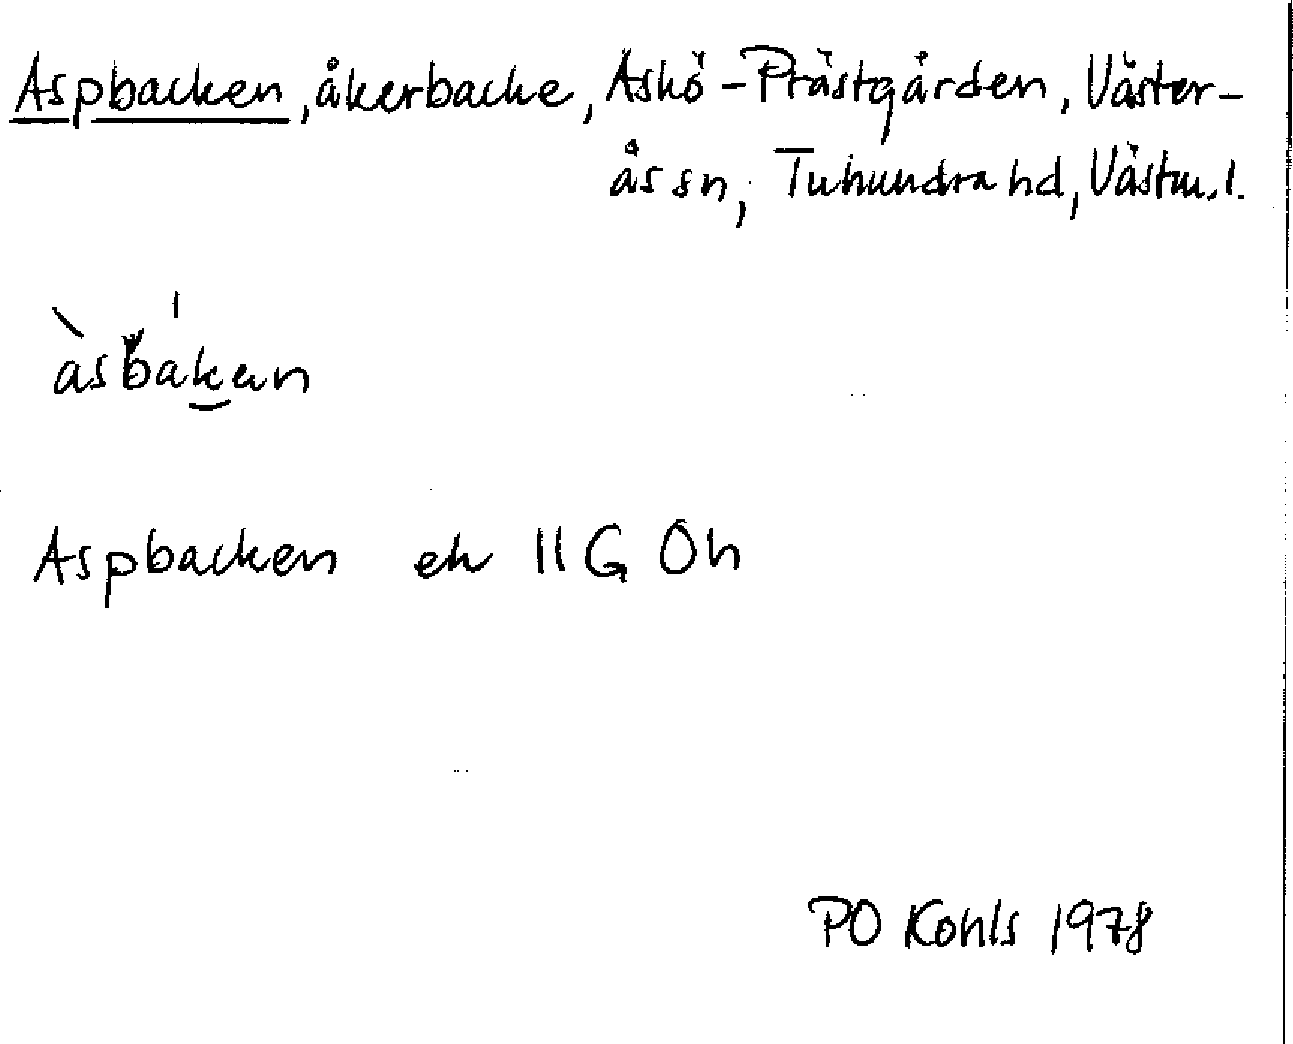 Aspbacken, åkerbacke, Askö-Prästgården, Väster-
ås sn, Tuhundra hd, Västm. l.
àsbák̮an
Aspbacken ek IIG Öh
PO Kohls 1978